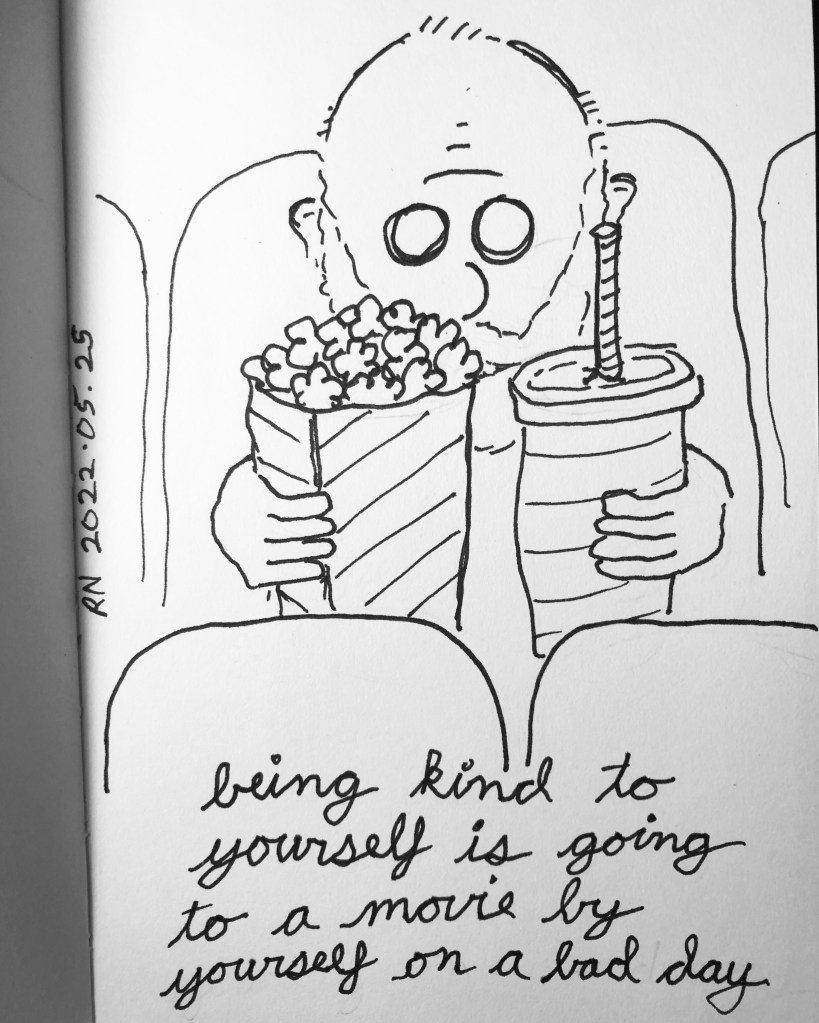 RN 2022.05.25
being kind to
yourself is going
to a movie by
yourself on a bad day